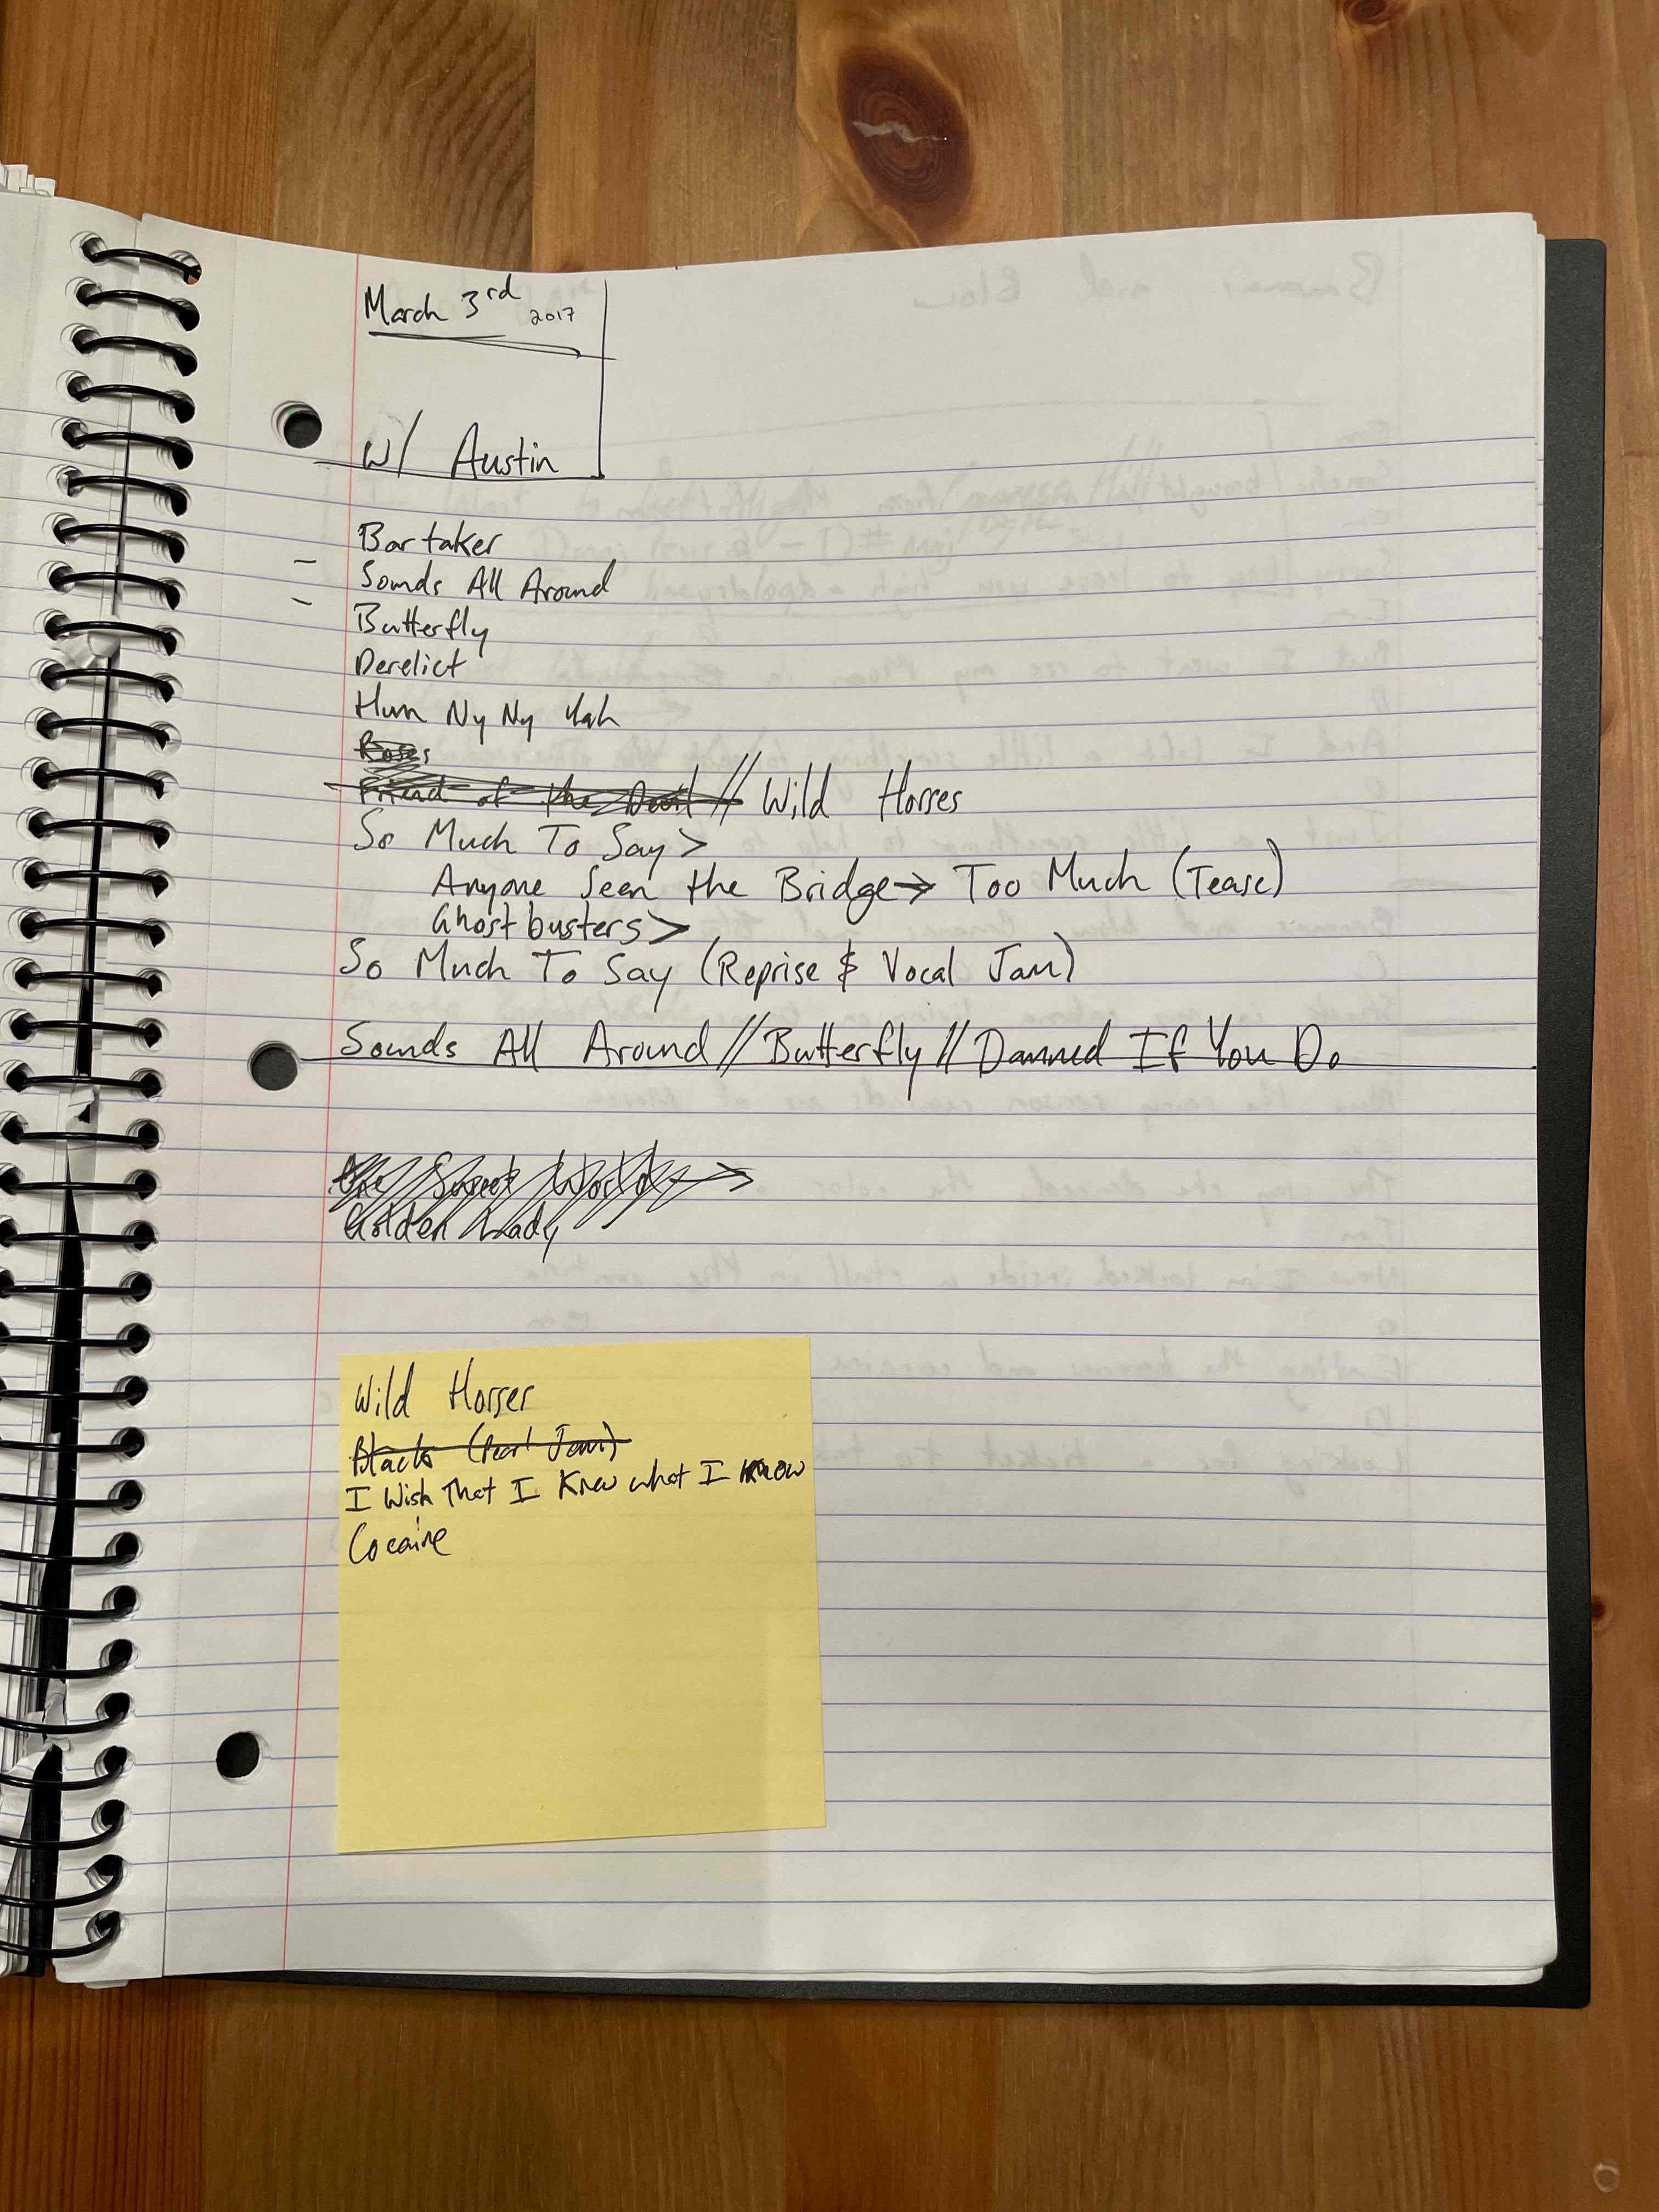 March 3rd 2017
W/ Austin
Bartaker
- Sounds All Around
- Butterfly
Derelict
Hum Ny Ny Yah
Roses
Friend of the Devil // Wild Horses
So Much To Say >
Anyone Seen the Bridge → Too Much (Tease)
Ghostbusters >
So Much To Say (Reprise & Vocal Jam)
Sounds All Around // Butterfly // Damned If You Do
One Sweet World →
Golden Lady
Wild Horses
Black (Pearl Jam)
I Wish That I Knew what I know
Cocaine